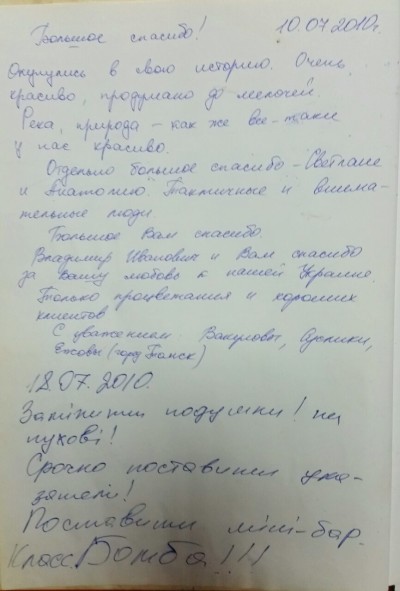 Большое спасибо! 10.07.2010г.
Окунулись в свою историю. Очень
красиво, продумано до мелочей.
Река, природа – как же все-таки
у нас красиво.
Отдельно большое спасибо – Светлане
и Анатолию. Тактичные и внима-
тельные люди.
Большое Вам спасибо.
Владимир Иванович и Вам спасибо
за Вашу любовь к нашей Украине.
Только процветания и хороших
клиентов
С уважением
18.07.2010.
Замінити подушки! на
пухові!
Срочно поставити ука-
затєлі!
Поставити міні-бар.
Класс. Бомба!!!